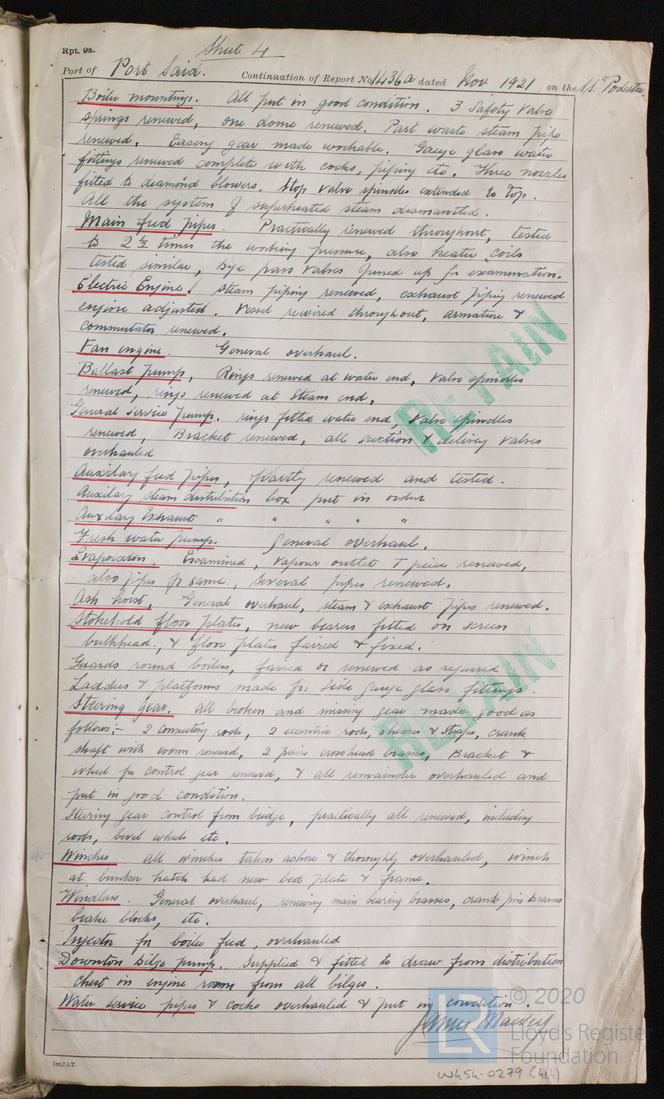 Rpt. 9a.
Sheet 4
Port of Port Said. Continuation of Report No 1436a dated Nov 1921 on the S.S. "Podesta
Boiler mountings. All put in good condition. 3 Safety Valve
springs renewed, one dome renewed. Part waste steam pipe
renewed. Easing gear made workable. Gauge glass water
fittings renewed complete with cocks, piping etc. Three nozzles
fitted to diamond blowers. Stop valve spindles extended to top.
All the system of superheated steam dismantled.
Main feed pipes. Practically renewed throughout, tested
to 2½ times the working pressure, also heater coils
tested similar, Bye pass valves opened up for examination.
Electric Engine. Steam piping renewed, exhaust piping renewed
engine adjusted. Vessel rewired throughout, armature &
commutator renewed.
Fan engine. General overhaul.
Ballast pump, Rings renewed at water end, valve spindles
renewed, rings renewed at steam end.
General Service Pump. rings fitted water end, valve spindles
renewed, Bracket renewed, all suction & delivery valves
overhauled
RETAIN
Auxilary feed pipes, partly renewed and tested.
Auxilary steam distribution box put in order
Auxilary Exhaust " " " " "
Fresh water pump. General overhaul.
Evaporator. Examined, vapour outlet T piece renewed,
also pipes for same, several pipes renewed.
Ash hoist, General overhaul, steam & exhaust pipes renewed.
Stokehold floor plates, new bearers fitted on screen
bulkhead. & floor plates faired & fixed.
Guards round boilers, faired or renewed as required
Ladders & platforms made for side gauge glass fittings.
RETAIN
Steering gear. All broken and missing gear made good as
follows:- 2 connecting rods, 2 eccentric rods, sheaves & straps, crank
shaft with worm renewed, 2 pairs crosshead brasses, Bracket &
wheel for control gear renewed, & all remainder overhauled and
put in good condition.
Steering gear control from bridge, practically all renewed, including
rods, bevel wheels etc.
Winches all winches taken ashore & thoroughly overhauled, winch
at bunker hatch had new bed plate & frame.
Windlass. General overhaul, renewing main bearing brasses, crank pin brasses
brake blocks, etc.
Injector for boiler feed, overhauled
Downton Bilge pump. Supplied & fitted to draw from distribution
chest in engine room from all bilges.
Water service pipes & cocks overhauled & put in condition.
James
© 2020
LR
Lloyd's Register
Foundation
W454-0279 (4/4)